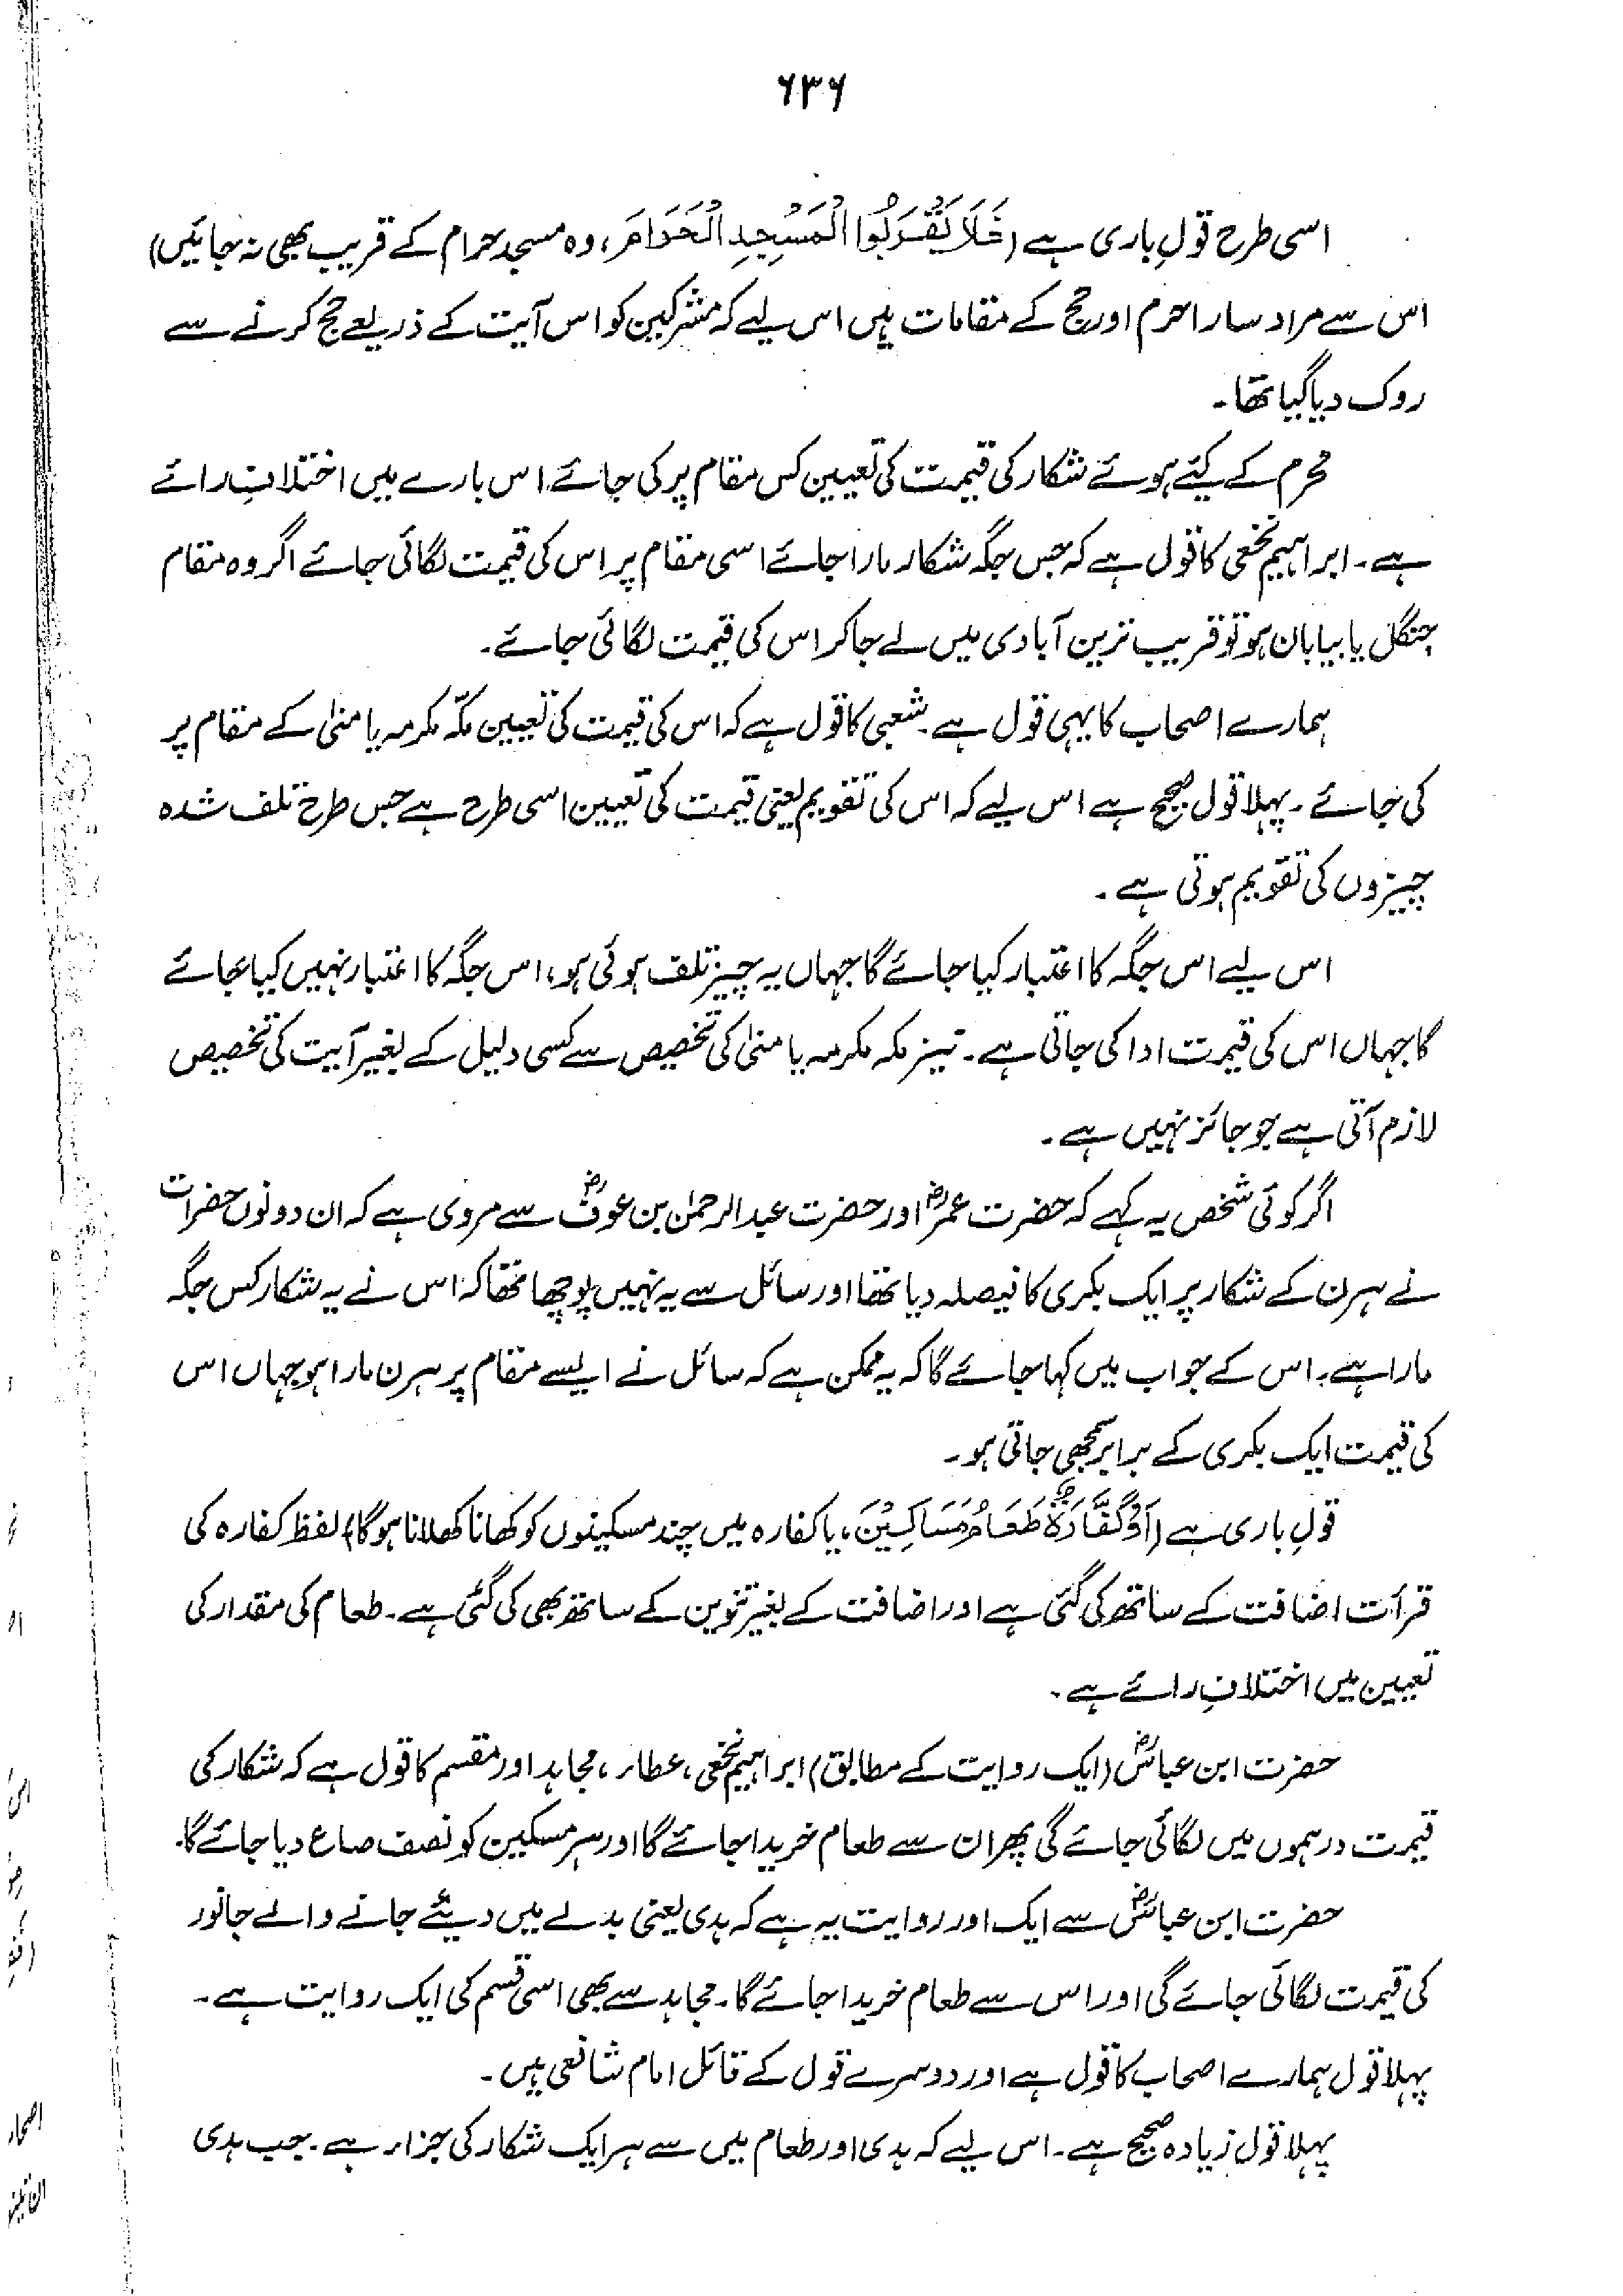 ۶۳۶
اسی طرح قولِ باری ہے (فَلَا يَقْرَبُوا الْمَسْجِدِ الْحَرَامَ، وہ مسجد حرام کے قریب بھی نہ جائیں)
اس سے مراد سارا حرم اور حج کے مقامات ہیں اس لیے کہ مشرکین کو اس آیت کے ذریعے حج کرنے سے
روک دیا گیا تھا۔
محرم کے کیئے ہوئے شکار کی قیمت کی تعیین کس مقام پر کی جائے اس بارے میں اختلافِ رائے
ہے۔ ابراہیم نخعی کا قول ہے کہ جس جگہ شکار مارا جائے اسی مقام پر اس کی قیمت لگائی جائے اگر وہ مقام
جنگل یا بیابان ہو تو قریب ترین آبادی میں لے جا کر اس کی قیمت لگائی جائے۔
ہمارے اصحاب کا یہی قول ہے۔ شعبی کا قول ہے کہ اس کی قیمت کی تعیین مکّہ مکرمہ یا منیٰ کے مقام پر
کی جائے۔ پہلا قول صحیح ہے اس لیے کہ اس کی تقویم یعنی قیمت کی تعیین اسی طرح ہے جس طرح تلف شدہ
چیزوں کی تقویم ہوتی ہے۔
اس لیے اس جگہ کا اعتبار کیا جائے گا جہاں یہ چیز تلف ہوئی ہو، اس جگہ کا اعتبار نہیں کیا جائے
گا جہاں اس کی قیمت ادا کی جاتی ہے۔ نیز مکہ مکرمہ یا منیٰ کی تخصیص سے کسی دلیل کے بغیر آیت کی تخصیص
لازم آتی ہے جو جائز نہیں ہے۔
اگر کوئی شخص یہ کہے کہ حضرت عمرؓ اور حضرت عبدالرحمٰن بن عوفؓ سے مروی ہے کہ ان دونوں حضرات
نے ہرن کے شکار پر ایک بکری کا فیصلہ دیا تھا اور سائل سے یہ نہیں پوچھا تھا کہ اس نے یہ شکار کس جگہ
مارا ہے۔ اس کے جواب میں کہا جائے گا کہ یہ ممکن ہے کہ سائل نے ایسے مقام پر ہرن مارا ہو جہاں اس
کی قیمت ایک بکری کے برابر سمجھی جاتی ہو۔
قولِ باری ہے (اَوْ كَفَّارَةٌ طَعَامُ مَسَاكِيْنَ، یا کفارہ میں چند مسکینوں کو کھانا کھلانا ہوگا) لفظ کفارہ کی
قرأت اضافت کے ساتھ کی گئی ہے اور اضافت کے بغیر تنوین کے ساتھ بھی کی گئی ہے۔ طعام کی مقدار کی
تعیین میں اختلافِ رائے ہے۔
حضرت ابن عباسؓ (ایک روایت کے مطابق) ابراہیم نخعی، عطاء، مجاہد اور مقسم کا قول ہے کہ شکار کی
قیمت درہموں میں لگائی جائے گی پھر ان سے طعام خریدا جائے گا اور ہر مسکین کو نصف صاع دیا جائے گا۔
حضرت ابن عباسؓ سے ایک اور روایت یہ ہے کہ ہدی یعنی بدلے میں دیئے جانے والے جانور
کی قیمت لگائی جائے گی اور اس سے طعام خریدا جائے گا۔ مجاہد سے بھی اسی قسم کی ایک روایت ہے۔
پہلا قول ہمارے اصحاب کا قول ہے اور دوسرے قول کے قائل امام شافعی ہیں۔
پہلا قول زیادہ صحیح ہے۔ اس لیے کہ ہدی اور طعام میں سے ہر ایک شکار کی جزاء ہے۔ جب ہدی